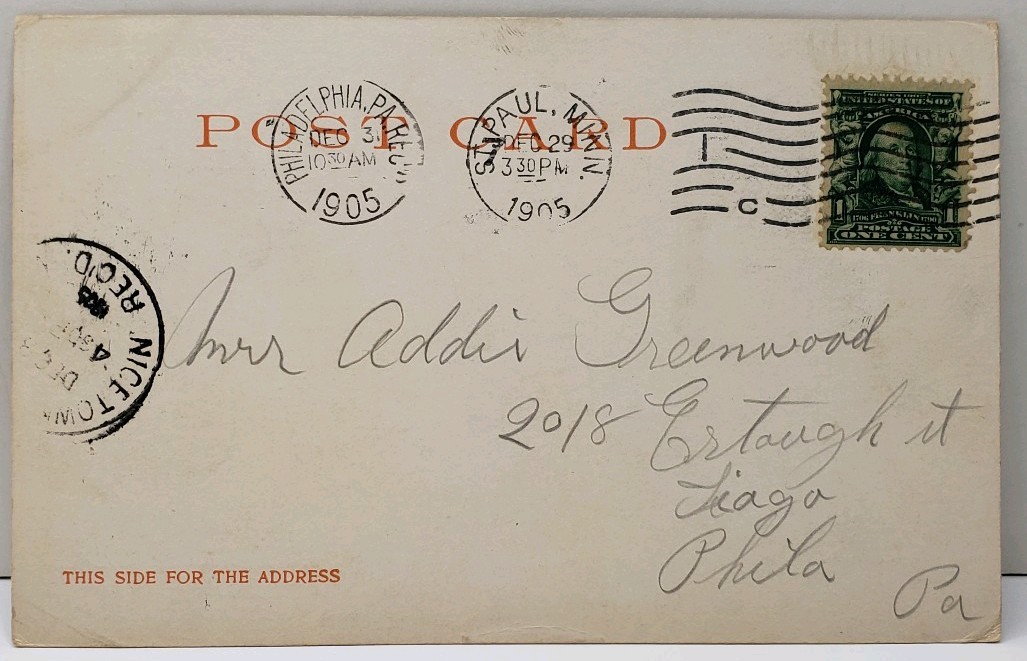 POST CARD
PHILADELPHIA, PA. REC'D
DEC 31
10 30 AM
1905
ST. PAUL, MINN.
DEC 29
3 30 PM
1905
C
SERIES 1902
UNITED STATES OF
AMERICA
1706 FRANKLIN 1790
POSTAGE
1 ONE CENT 1
NICETOWN
REC'D.
4
DEC 3
1905
Addie Greenwood
2018 Estaugh st
Tioga
Phila
Pa
THIS SIDE FOR THE ADDRESS